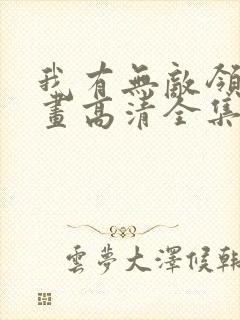 我有無敵領
畫高清全集
雲夢大澤候韓